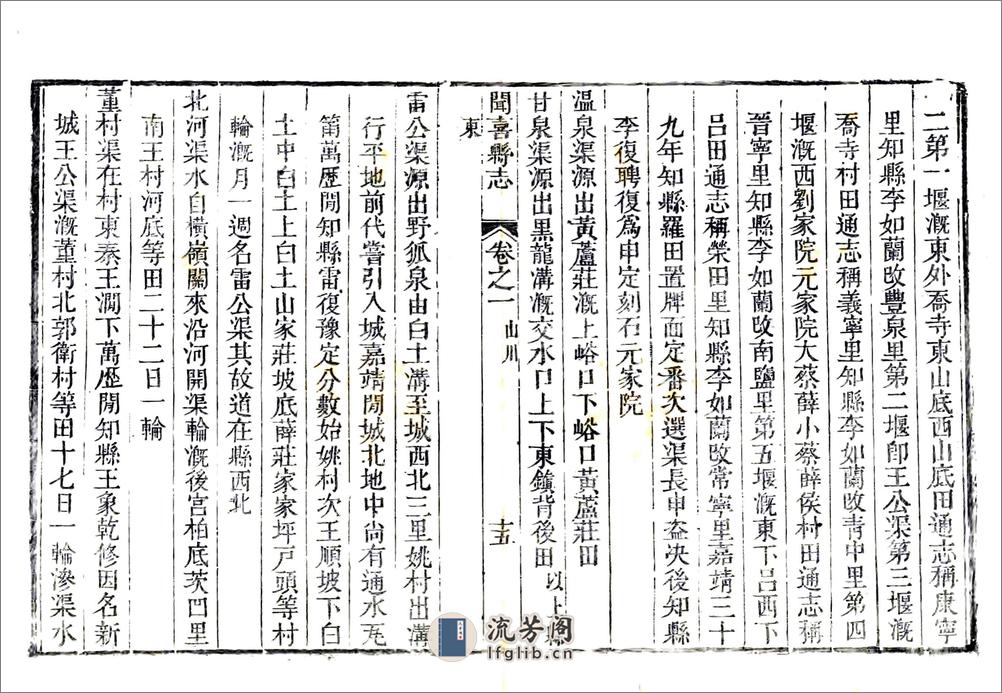 二第一堰漑東外喬寺東山底西山底田通志稱康寧
里知縣李如蘭改豐泉里第二堰卽王公渠第三堰漑
喬寺村田通志稱義寧里知縣李如蘭改青中里第四
堰漑西劉家院元家院大蔡薛小蔡薛侯村田通志稱
晉寧里知縣李如蘭改南鹽里第五堰漑東下吕西下
吕田通志稱榮田里知縣李如蘭改常寧里嘉靖三十
九年知縣羅田置牌面定番次選渠長申盗决後知縣
李復聘復爲申定刻石元家院
温泉渠源出黃蘆莊漑上峪口下峪口黃蘆莊田
甘泉渠源出黑龍溝漑交水口上下東鎮背後田以上縣
東
聞喜縣志 卷之一 山川 十五
雷公渠源出野狐泉由白土溝至城西北三里姚村出溝
行平地前代嘗引入城嘉靖間城北地中尚有通水瓦
筩萬歷間知縣雷復豫定分數始姚村次王順坡下白
土中白土上白土山家莊坡底薛莊家家坪戸頭等村
輪漑月一週名雷公渠其故道在縣西北
北河渠水自横嶺關來沿河開渠輪漑後宫柏底茨凹里
南王村河底等田二十二日一輪
董村渠在村東秦王澗下萬歷間知縣王象乾修因名新
城王公渠漑董村北郭衛村等田十七日一輪滲渠水
流芳阁
lfglib.cn